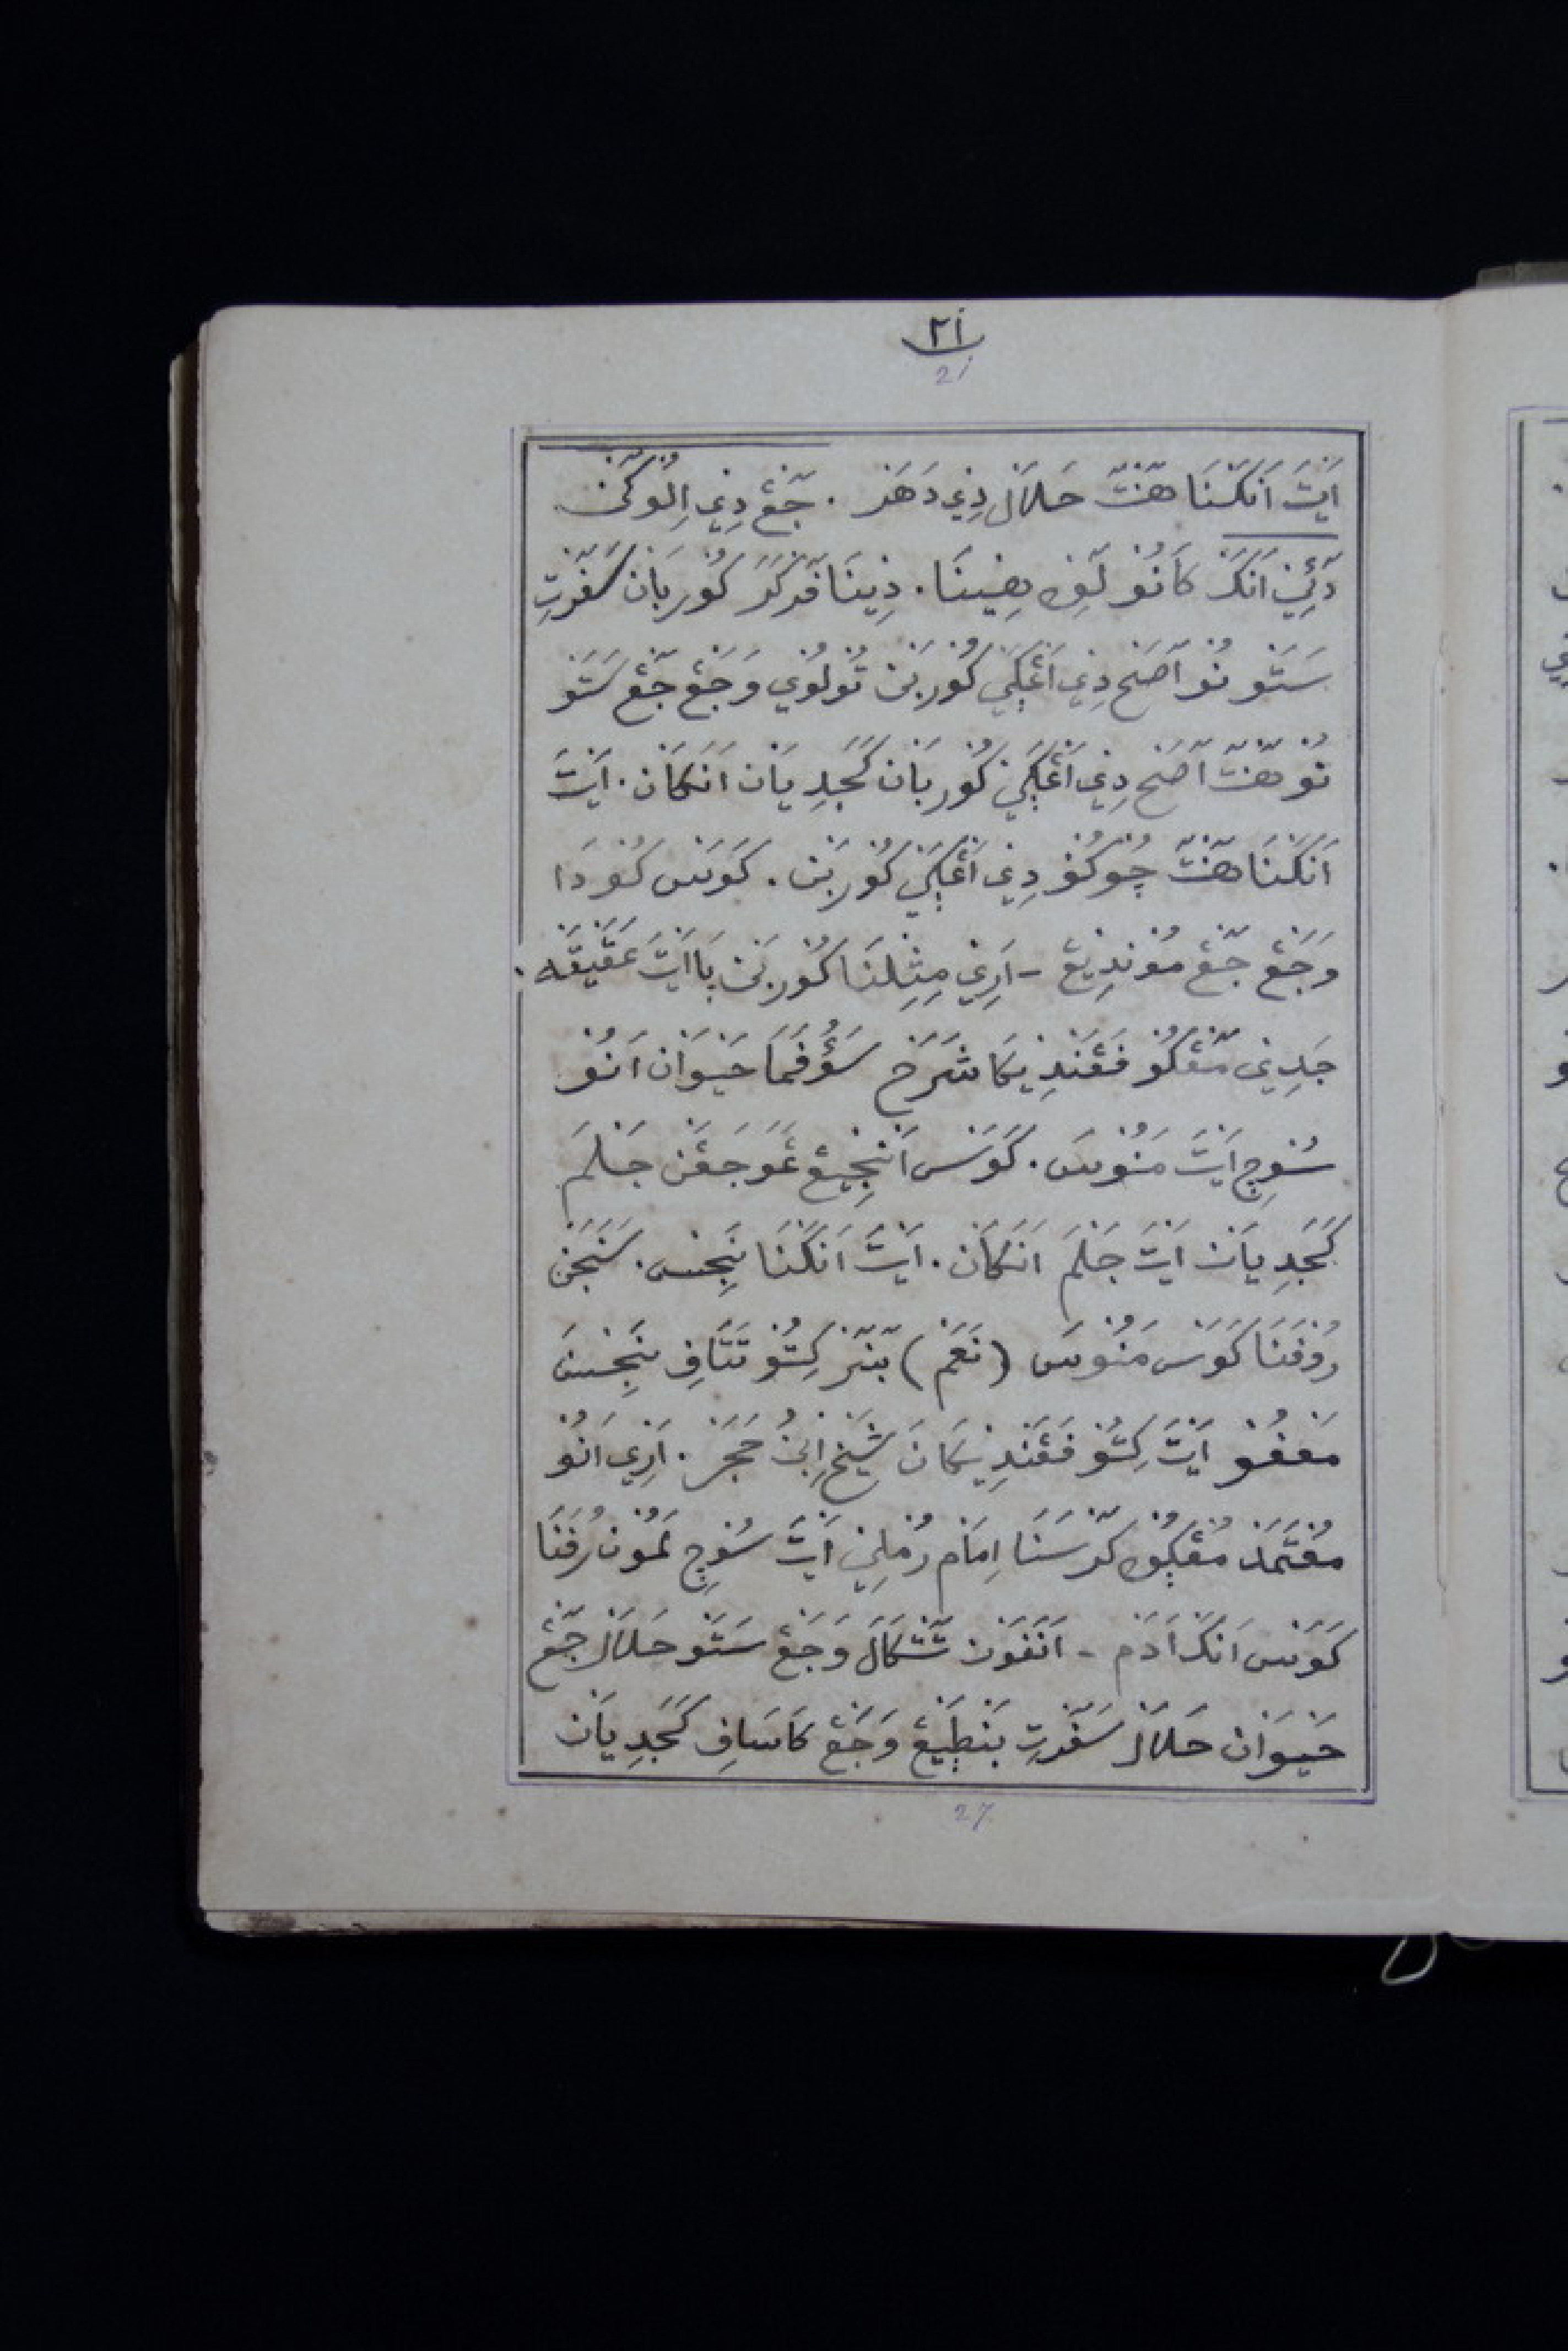 ٢١
21
اَيْتَ اَنَكْنَا هٓنْتٓ حَلَالْ دِيْ دَهَرْ . جٓعْ دِيْ اِلُوْكٓنْ
دٓئِيْ اَنَكَ كَانُوْ لٓفِهْ بِضِيْنَا . دِيْنَا فٓرْكَرَ كُوْرْبَانْ سَفٓرْتِ
سَتَوْ نُوْ اٰصَحْ دِيْ اَڠْكَيْ كُوْرْبَنْ تُوْلُوْيْ وَجَعْ جٓعْ سَتَوْ
نُوْ هٓنْتٓ اٰصَحْ دِيْ اَڠْكَيْ كُوْرْبَانْ كَجَدِيْيَانْ اَنَكَانْ . اَيْتَ
اَنَكْنَا هٓنْتٓ چُوْكُوْ دِيْ اَڠْكَيْ كُوْرْبَنْ . كَوَسْ كُوْدَا
وَجَعْ جٓعْ مُوْنْدِيْڠْ - اَرِيْ مِثِلْنَا كُوْرْبَنْ بَا اَيْتَ عَقِيْقَهْ .
جَدِيْ مٓڠْكُوْ فَڠَنْدِيْكَا شَرَحْ سَؤُفَمَا حَيْوَانْ اَنُوْ
سُوْچِ اَيْتَ مَنُوْسَ . كَوَسْ اَنْجِيْڠْ عَوَجَڠَنْ جَلْمَ
كَجَدِيْيَانْ اَيْتَ جَلْمَ اَنَكَانْ . اَيْتَ اَنَكْنَا نَجِسْ . سَنَجَنْ
رُوْفَنَا كَوَسْ مَنُوْسَ (نَعَمْ) بٓنٓرْ كِتُوْ تَتَافِ نَجِسْنَ
مَعْفُوْ اَيْتَ كِتُوْ فَڠَنْدِيْكَانَ شَيْخْ اِبْنُ حَجَرْ . اَرِيْ اَنُوْ
مُعْتَمَدْ مُڠْكُوْهْ كٓرْسَنَا اِمَامْ رُمْلِيْ اَيْتَ سُوْچِ لَمُوْنْ رُفَنَا
كَوَسْ اَنَكْ اَدَمْ - اَنَفَوْنْ تٓتْكَالَ وَجَعْ سَتَوْ حَلَالْ جٓعْ
حَيْوَانْ حَلَالْ سَفٓرْتِ بَنْطِيْڠْ وَجَعْ كَاسَافِ كَجَدِيْيَانْ
27